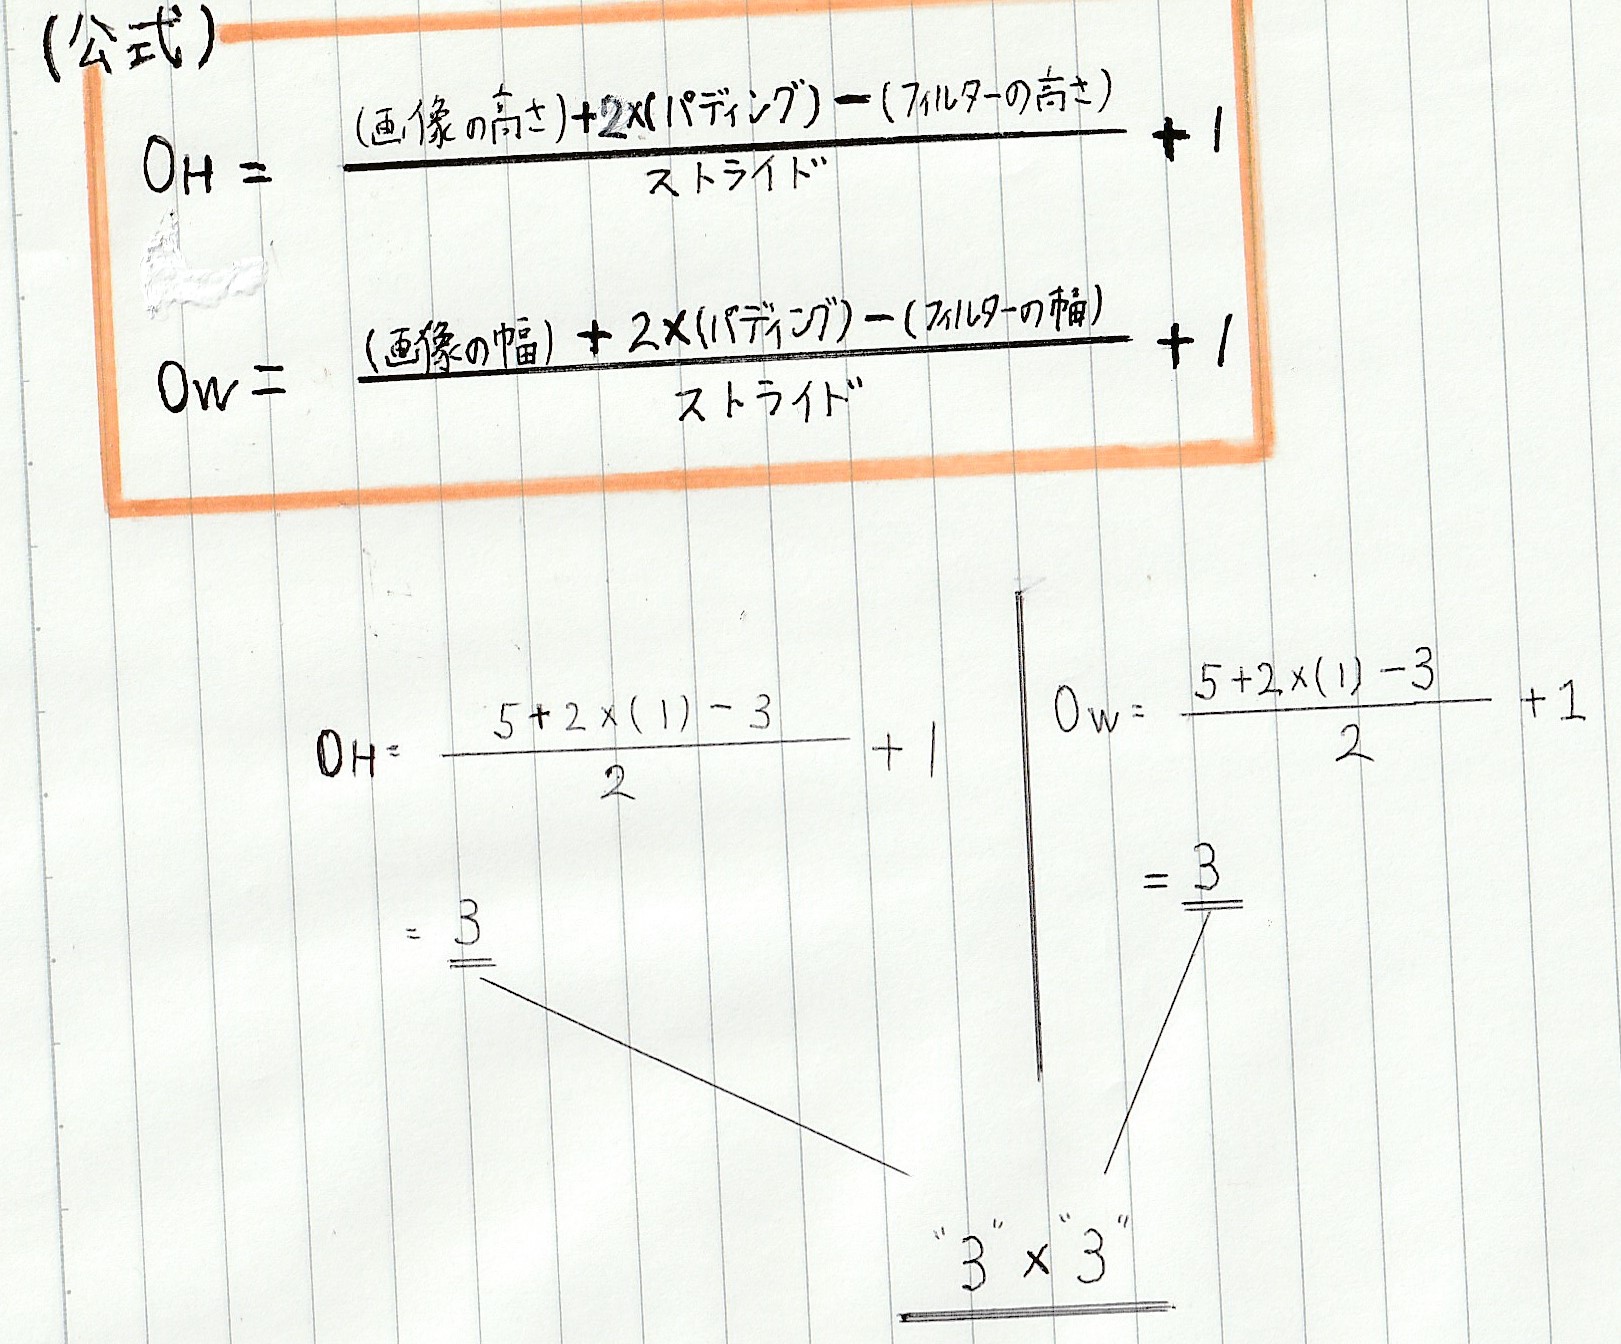 (公式)
OH = (画像の高さ)+2×(パディング)-(フィルターの高さ) / ストライド + 1
OW = (画像の幅) + 2×(パディング)-(フィルターの幅) / ストライド + 1
OH = 5+2×(1)-3 / 2 + 1
= 3
OW = 5+2×(1)-3 / 2 + 1
= 3
"3" × "3"